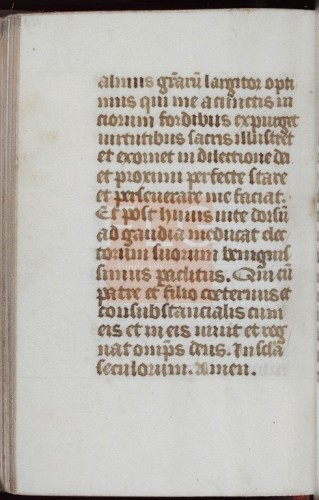 almus gr̃arũ largitor opti
mus qui me a cunctis in
ciorum sordibus expurget
uirtutibus sacris illustret
et exornet in dilectione dei
et proximi perfecte stare
et perseuerare me faciat.
Et post huius uite dorsũ
ad gaudia me ducat elec
torum suorum benignis
simus paclitus. Qui cũ
patre et filio coeternus et
consubstancialis cum
eis et in eis uiuit et reg
nat omp̃s deus. In sc̃la
seculorum. Amen.